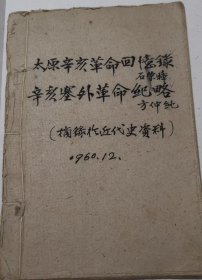 太原辛亥革命回憶錄
石荣暲
辛亥塞外革命紀略
方仲純
(摘録於近代史資料)
1960.12.